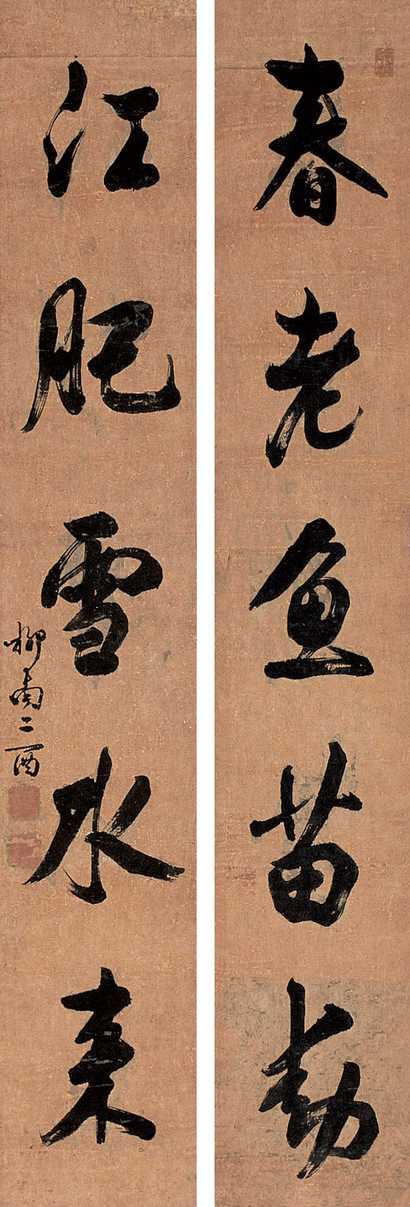 春老鱼苗動
江肥雪水來
柳南二酉